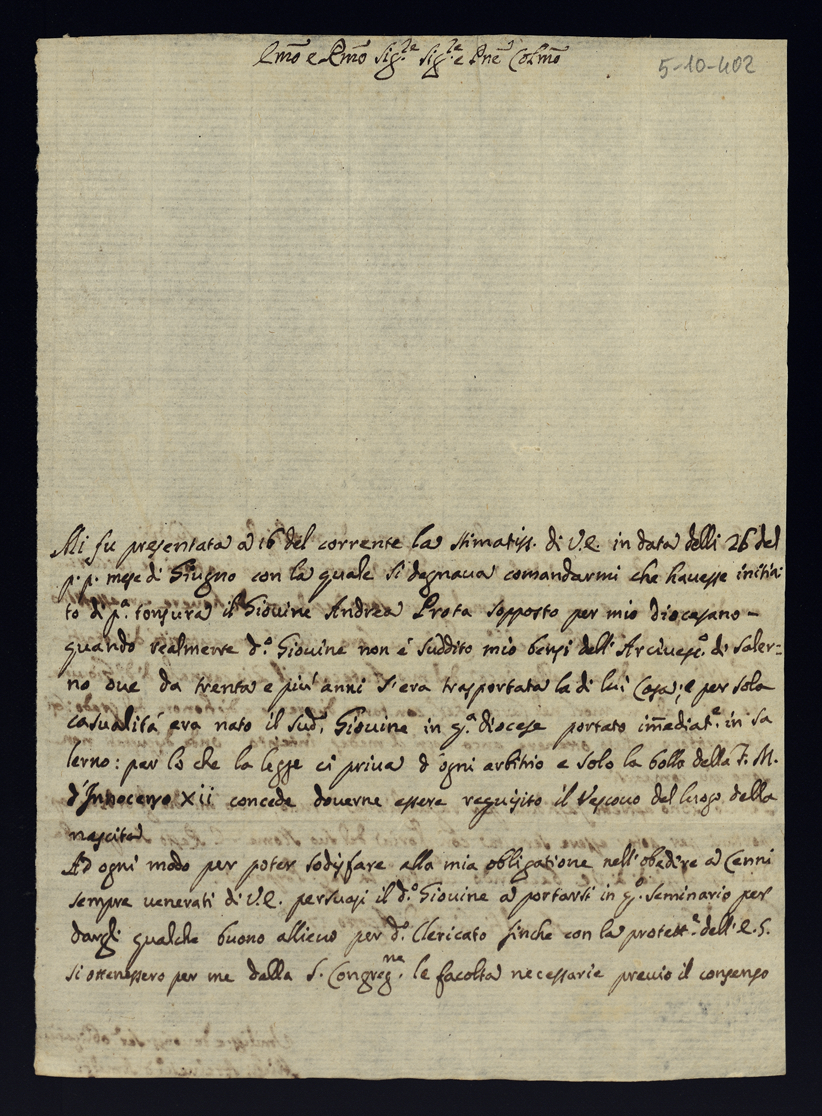 Emo e Rmo Sig.re Sig.re e Pne Colmo
5-10-402
Mi fu presentata a 16 del corrente la stimatiss. di V.E. in data delli 26 del
p.p. mese di Giugno con la quale si degnava comandarmi che havesse initia
to di p.a tonsura il Giovine Andrea Prota sopposto per mio diocesano –
quando realmente d.o Giovine non é suddito mio bensi dell'Arcivesc.o di Saler=
no ove da trenta e piu' anni s'era trasportata la di lui Casa; e per sola
casualitá era nato il sud.o Giovine in q.a diocese portato immediat.e in Sa
lerno: per lo che la legge ci priva d'ogni arbitrio e solo la bolla della F. M.
d'Innocenzo XII concede doverne essere requisito il Vescovo del luogo della
nascita
Ad ogni modo per poter sodisfare alla mia obligatione nell'obedire a Cenni
sempre venerati di V.E. persuasi il d.o Giovine a portarsi in q.o seminario per
dargli qualche buono allievo per d.o Clericato finche con la protett.e dell'E.S.
si ottenessero per me dalla S. Congreg.ne le facolta necessarie previo il consenso